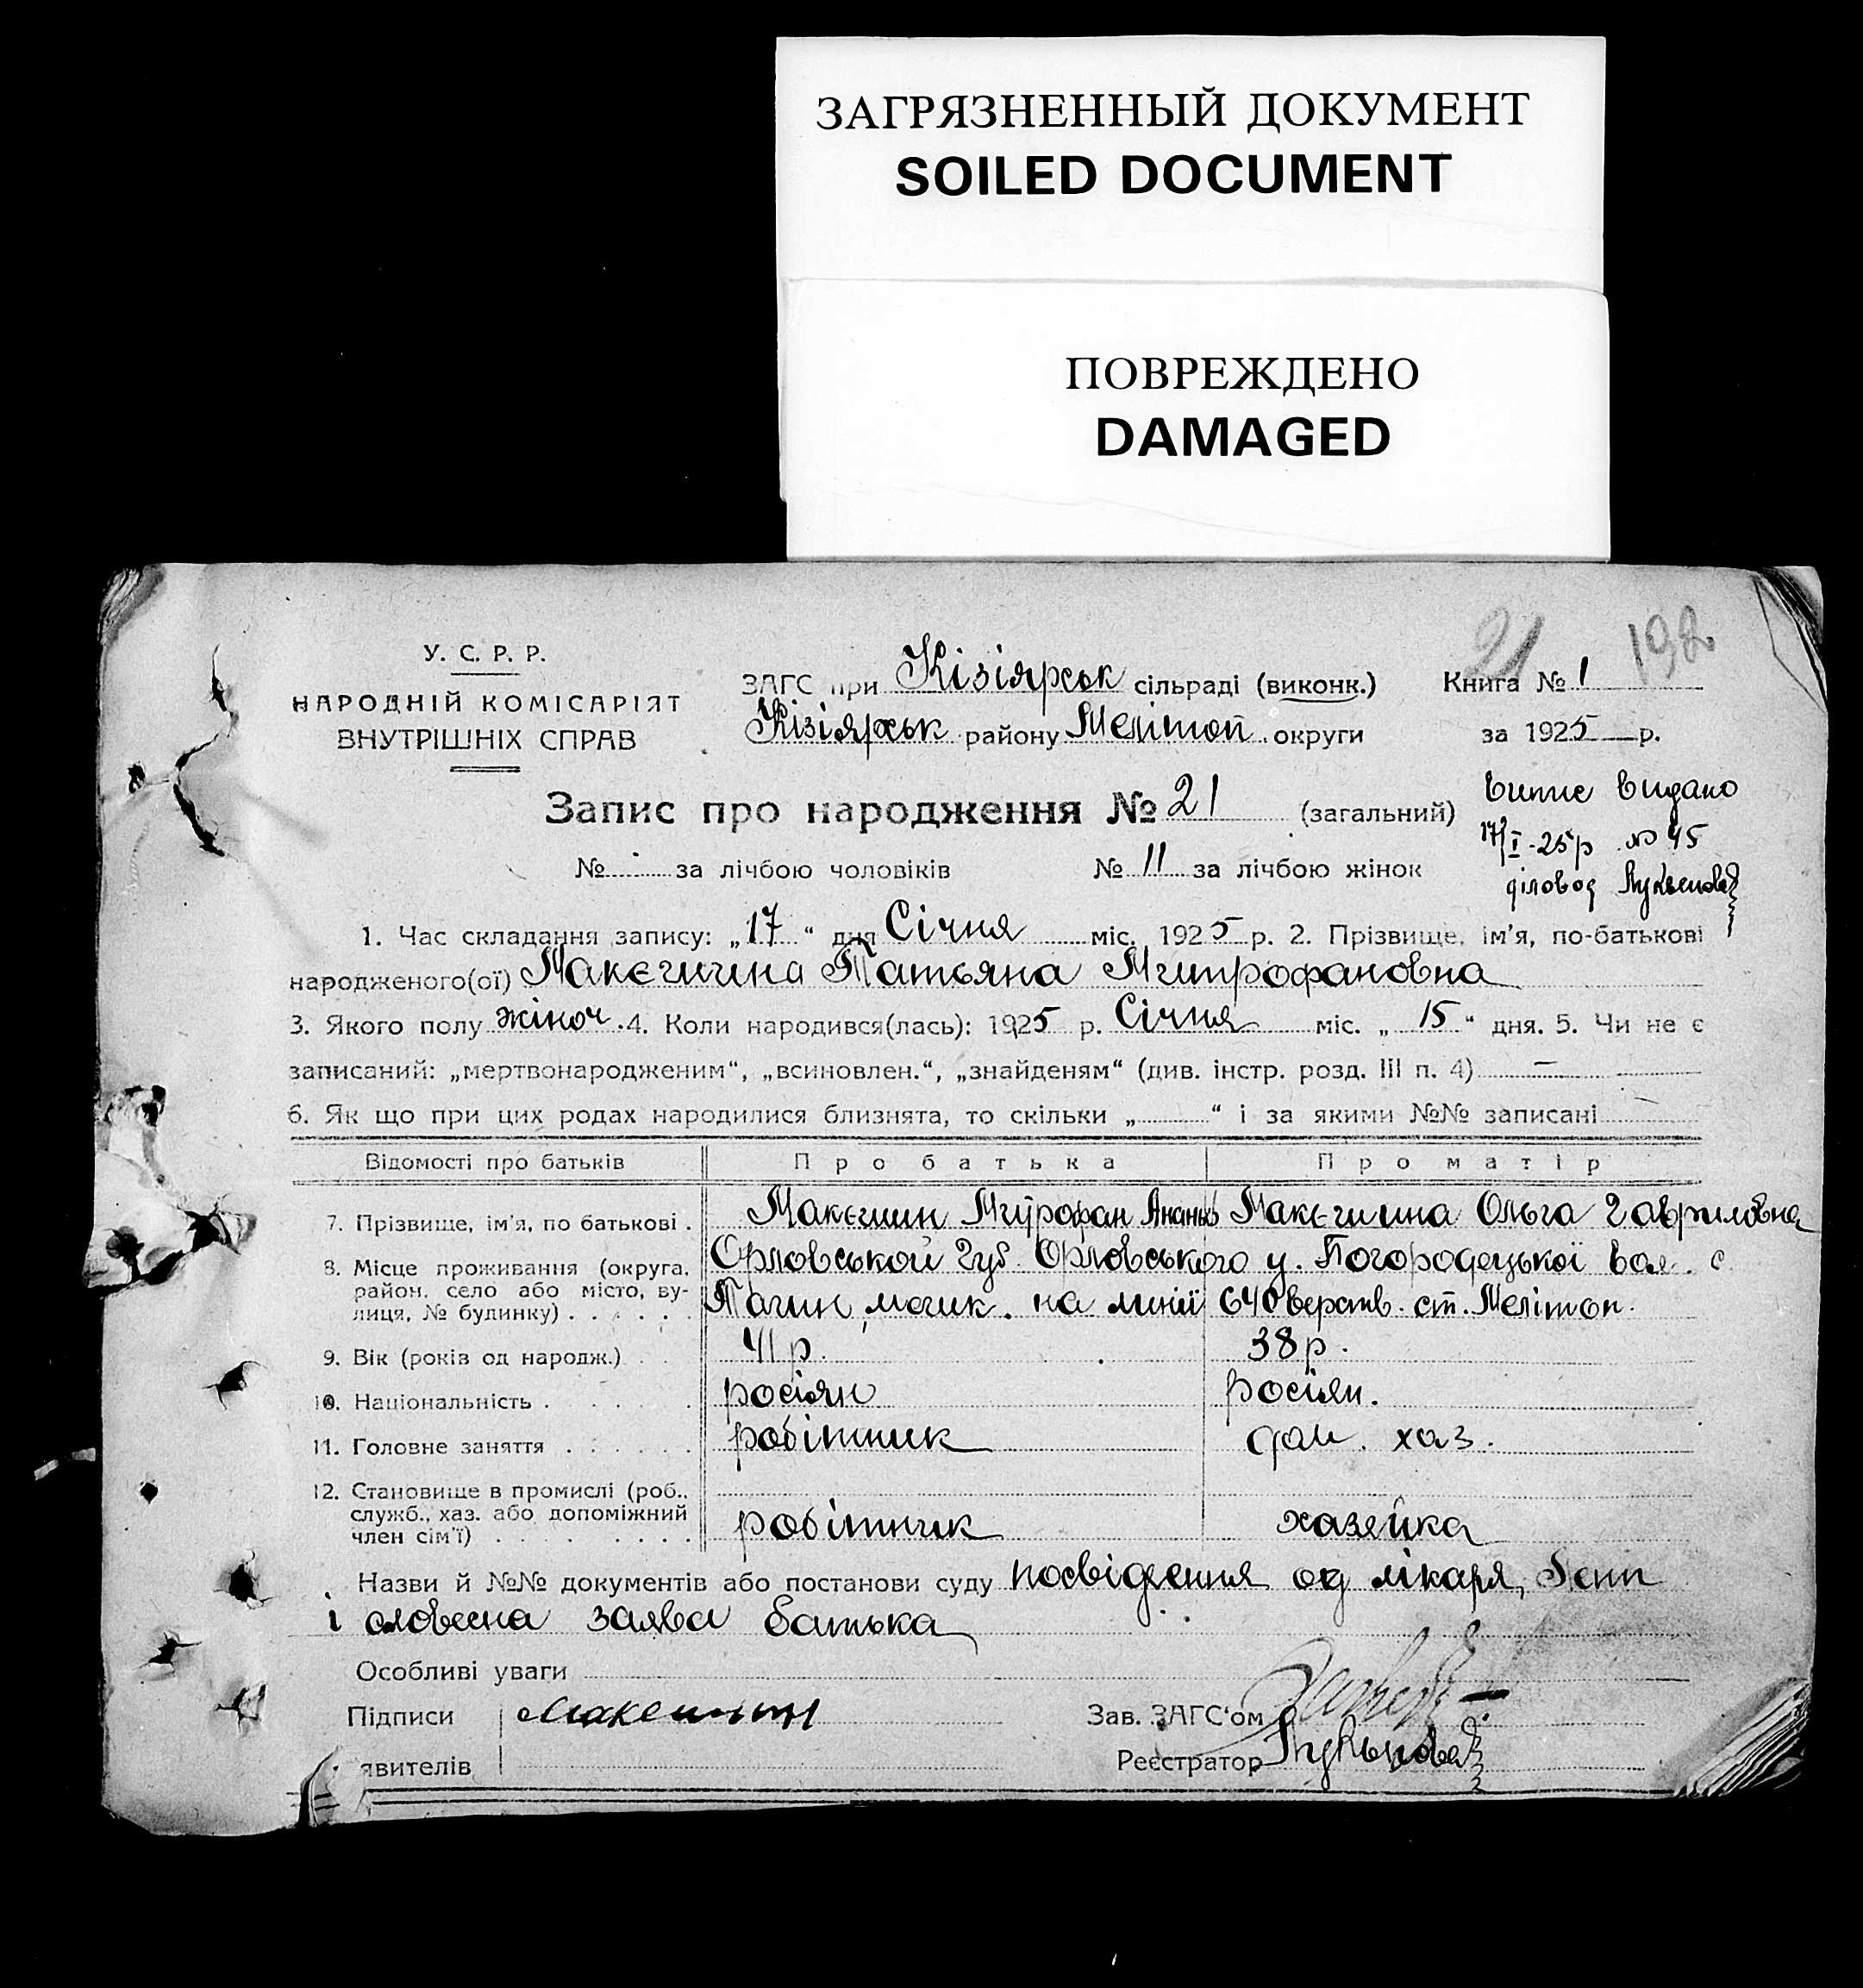 ЗАГРЯЗНЕННЫЙ ДОКУМЕНТ
SOILED DOCUMENT
ПОВРЕЖДЕНО
DAMAGED
21 192
У. С. Р. Р.
НАРОДНІЙ КОМІСАРІЯТ
ВНУТРІШНІХ СПРАВ
ЗАГС при Кізіярськ сільраді (виконк.) Книга № 1
Кізіярськ району Мелітоп. округи за 1925 р.
Запис про народження № 21 (загальний)
Випис видано
17/I-25р № 45
діловод
№ за лічбою чоловіків № 11 за лічбою жінок
1. Час складання запису: „17“ дня Січня міс. 1925 р. 2. Прізвище, ім'я, по-батькові
народженого(ої) Макєшина Татьяна Митрофановна
3. Якого полу жіноч. 4. Коли народився(лась): 1925 р. Січня міс. „15“ дня. 5. Чи не є
записаний: „мертвонародженим“, „всиновлен.“, „знайденям“ (див. інстр. розд. III п. 4) —
6. Як що при цих родах народилися близнята, то скільки „ “ і за якими №№ записані
Відомості про батьків Про батька Про матір
7. Прізвище, ім'я, по батькові . Макєшин Митрофан Ананьев Макєшина Ольга Гавриловна
8. Місце проживання (округа, район, село або місто, вулиця, № будинку) . . . . .
Орловської Губ. Орловського у. Погородецької вол. с.
Тагин, на линії 640 верств. ст. Мелітоп.
9. Вік (років од народж.) . . 41 р. 38 р.
10. Національність . . . . . росіян росіян.
11. Головне заняття . . . . . робітник дом. хаз.
12. Становище в промислі (роб., служб., хаз. або допоміжний член сім'ї) . . . . . . .
робітник хазяйка
Назви й №№ документів або постанови суду посвідчення од лікаря,
і словесна заява батька
Особливі уваги
Підписи Макешин Зав. ЗАГС'ом
явителів Реєстратор